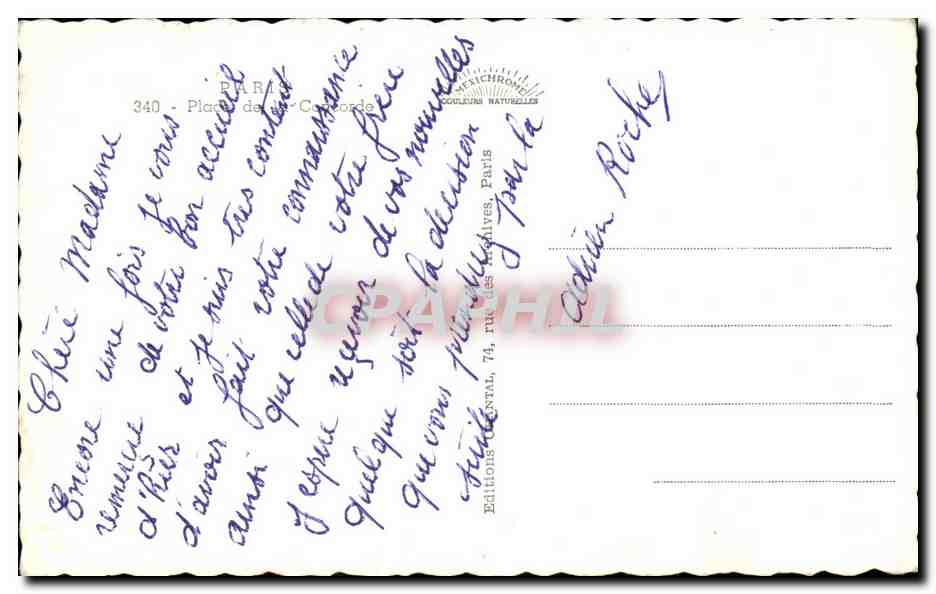 PARIS
340 - Place de la Concorde
MEXICHROME
COULEURS NATURELLES
Editions CHANTAL, 74, rue des Archives, Paris
CPAPHIL
Chère Madame
Encore une fois je vous
remercie de votre bon accueil
d'hier et je suis très content
d'avoir fait votre connaissance
ainsi que celle de votre frère
J'espère recevoir de vos nouvelles
quelque soit la décision
que vous prendrez par la
suite
Adrien Roche